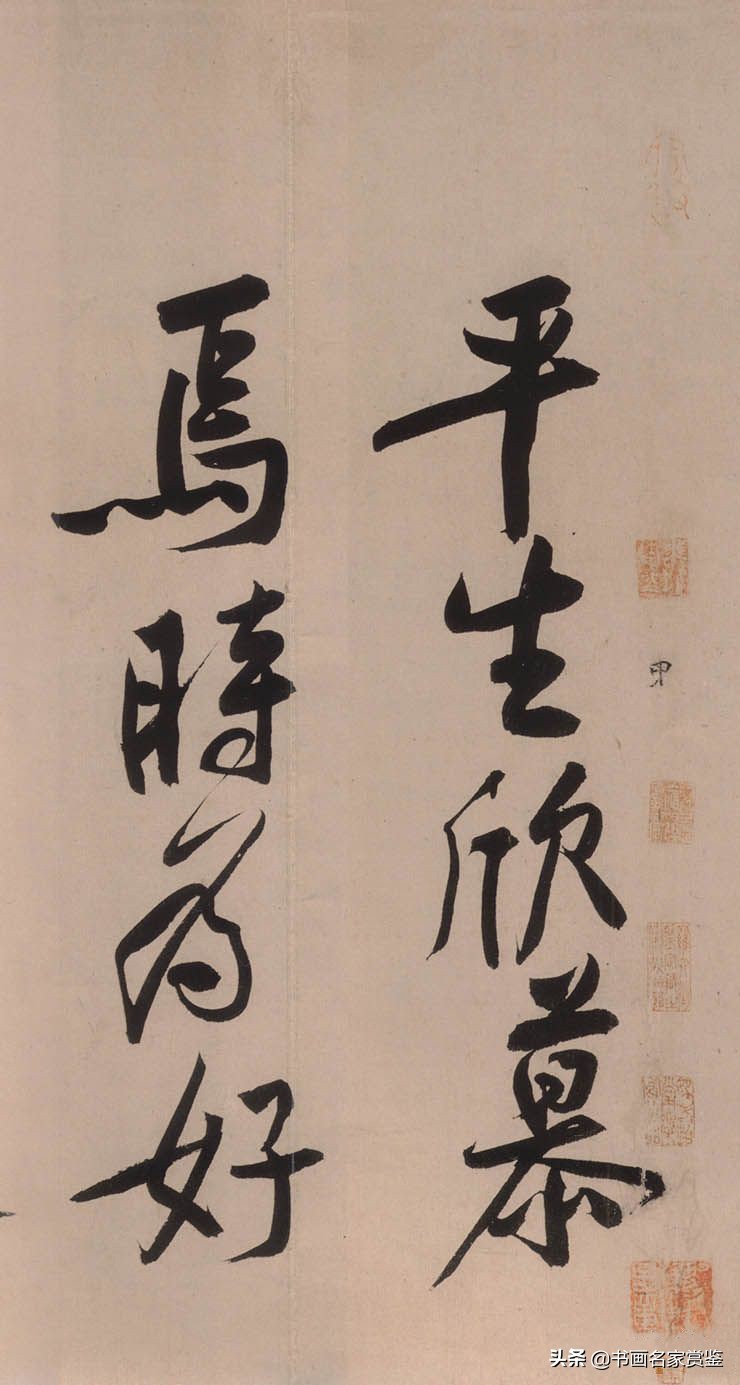 平生欣慕
焉時為好
甲
头条 @书画名家赏鉴